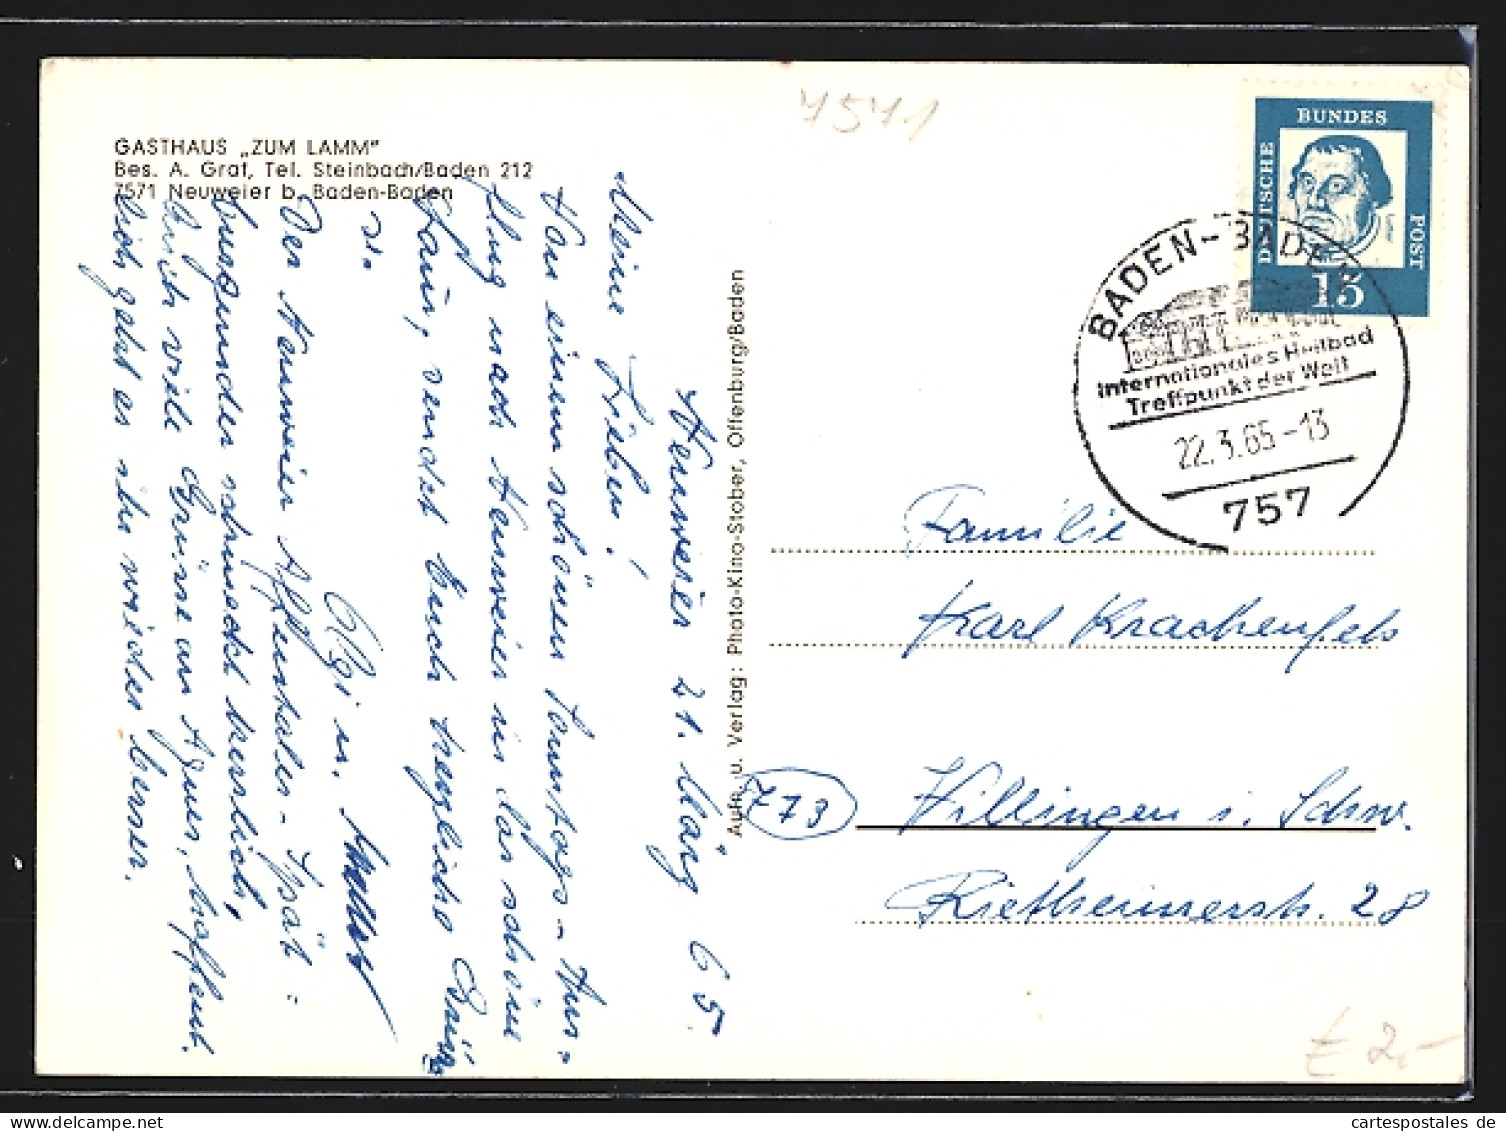 7571
GASTHAUS „ZUM LAMM"
Bes. A. Graf, Tel. Steinbach/Baden 212
7571 Neuweier b. Baden-Baden
Neuweier 21. März 65.
Meine Lieben!
Von einem schönen Sonntags-Aus-
flug nach Neuweier in das schöne
Lamm, sendet Euch herzliche Grüße
Der Neuweier Affentaler-Spät-
burgunder schmeckt herrlich,
Auch viele Grüsse an Agnes, hoffent-
lich geht es ihr wieder besser.
Aufn. u. Verlag: Photo-Kino-Stober, Offenburg/Baden
DEUTSCHE
BUNDES
POST
15
BADEN-BADEN
Internationales Heilbad
Treffpunkt der Welt
22.3.65-13
757
Familie
Karl Krachenfels
773
Villingen i. Schw.
Rietheimerstr. 28
£ 2,-
cartespostales de